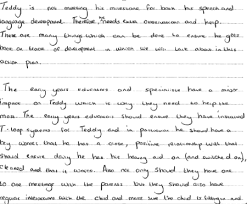 Teddy is not meeting his milestone for both his speech and
language development. Therefore needs extra observations and help.
There are many things which can be done to ensure he goes
back on track of development in which we will talk about in this
action plan.
The early years educators and specialists have a major
impact on Teddy which is why they need to help the
most. The early years educators should ensure they have
T-loop systems for Teddy and in particular he should have a
key worker that he has a close, positive relationship with that
should ensure daily he has his hearing aid on (and switched on),
cleaned and that it works. Also not only should they have one
to one meeting with the parents but they should also have
regular interactions with the child and make sure the child is